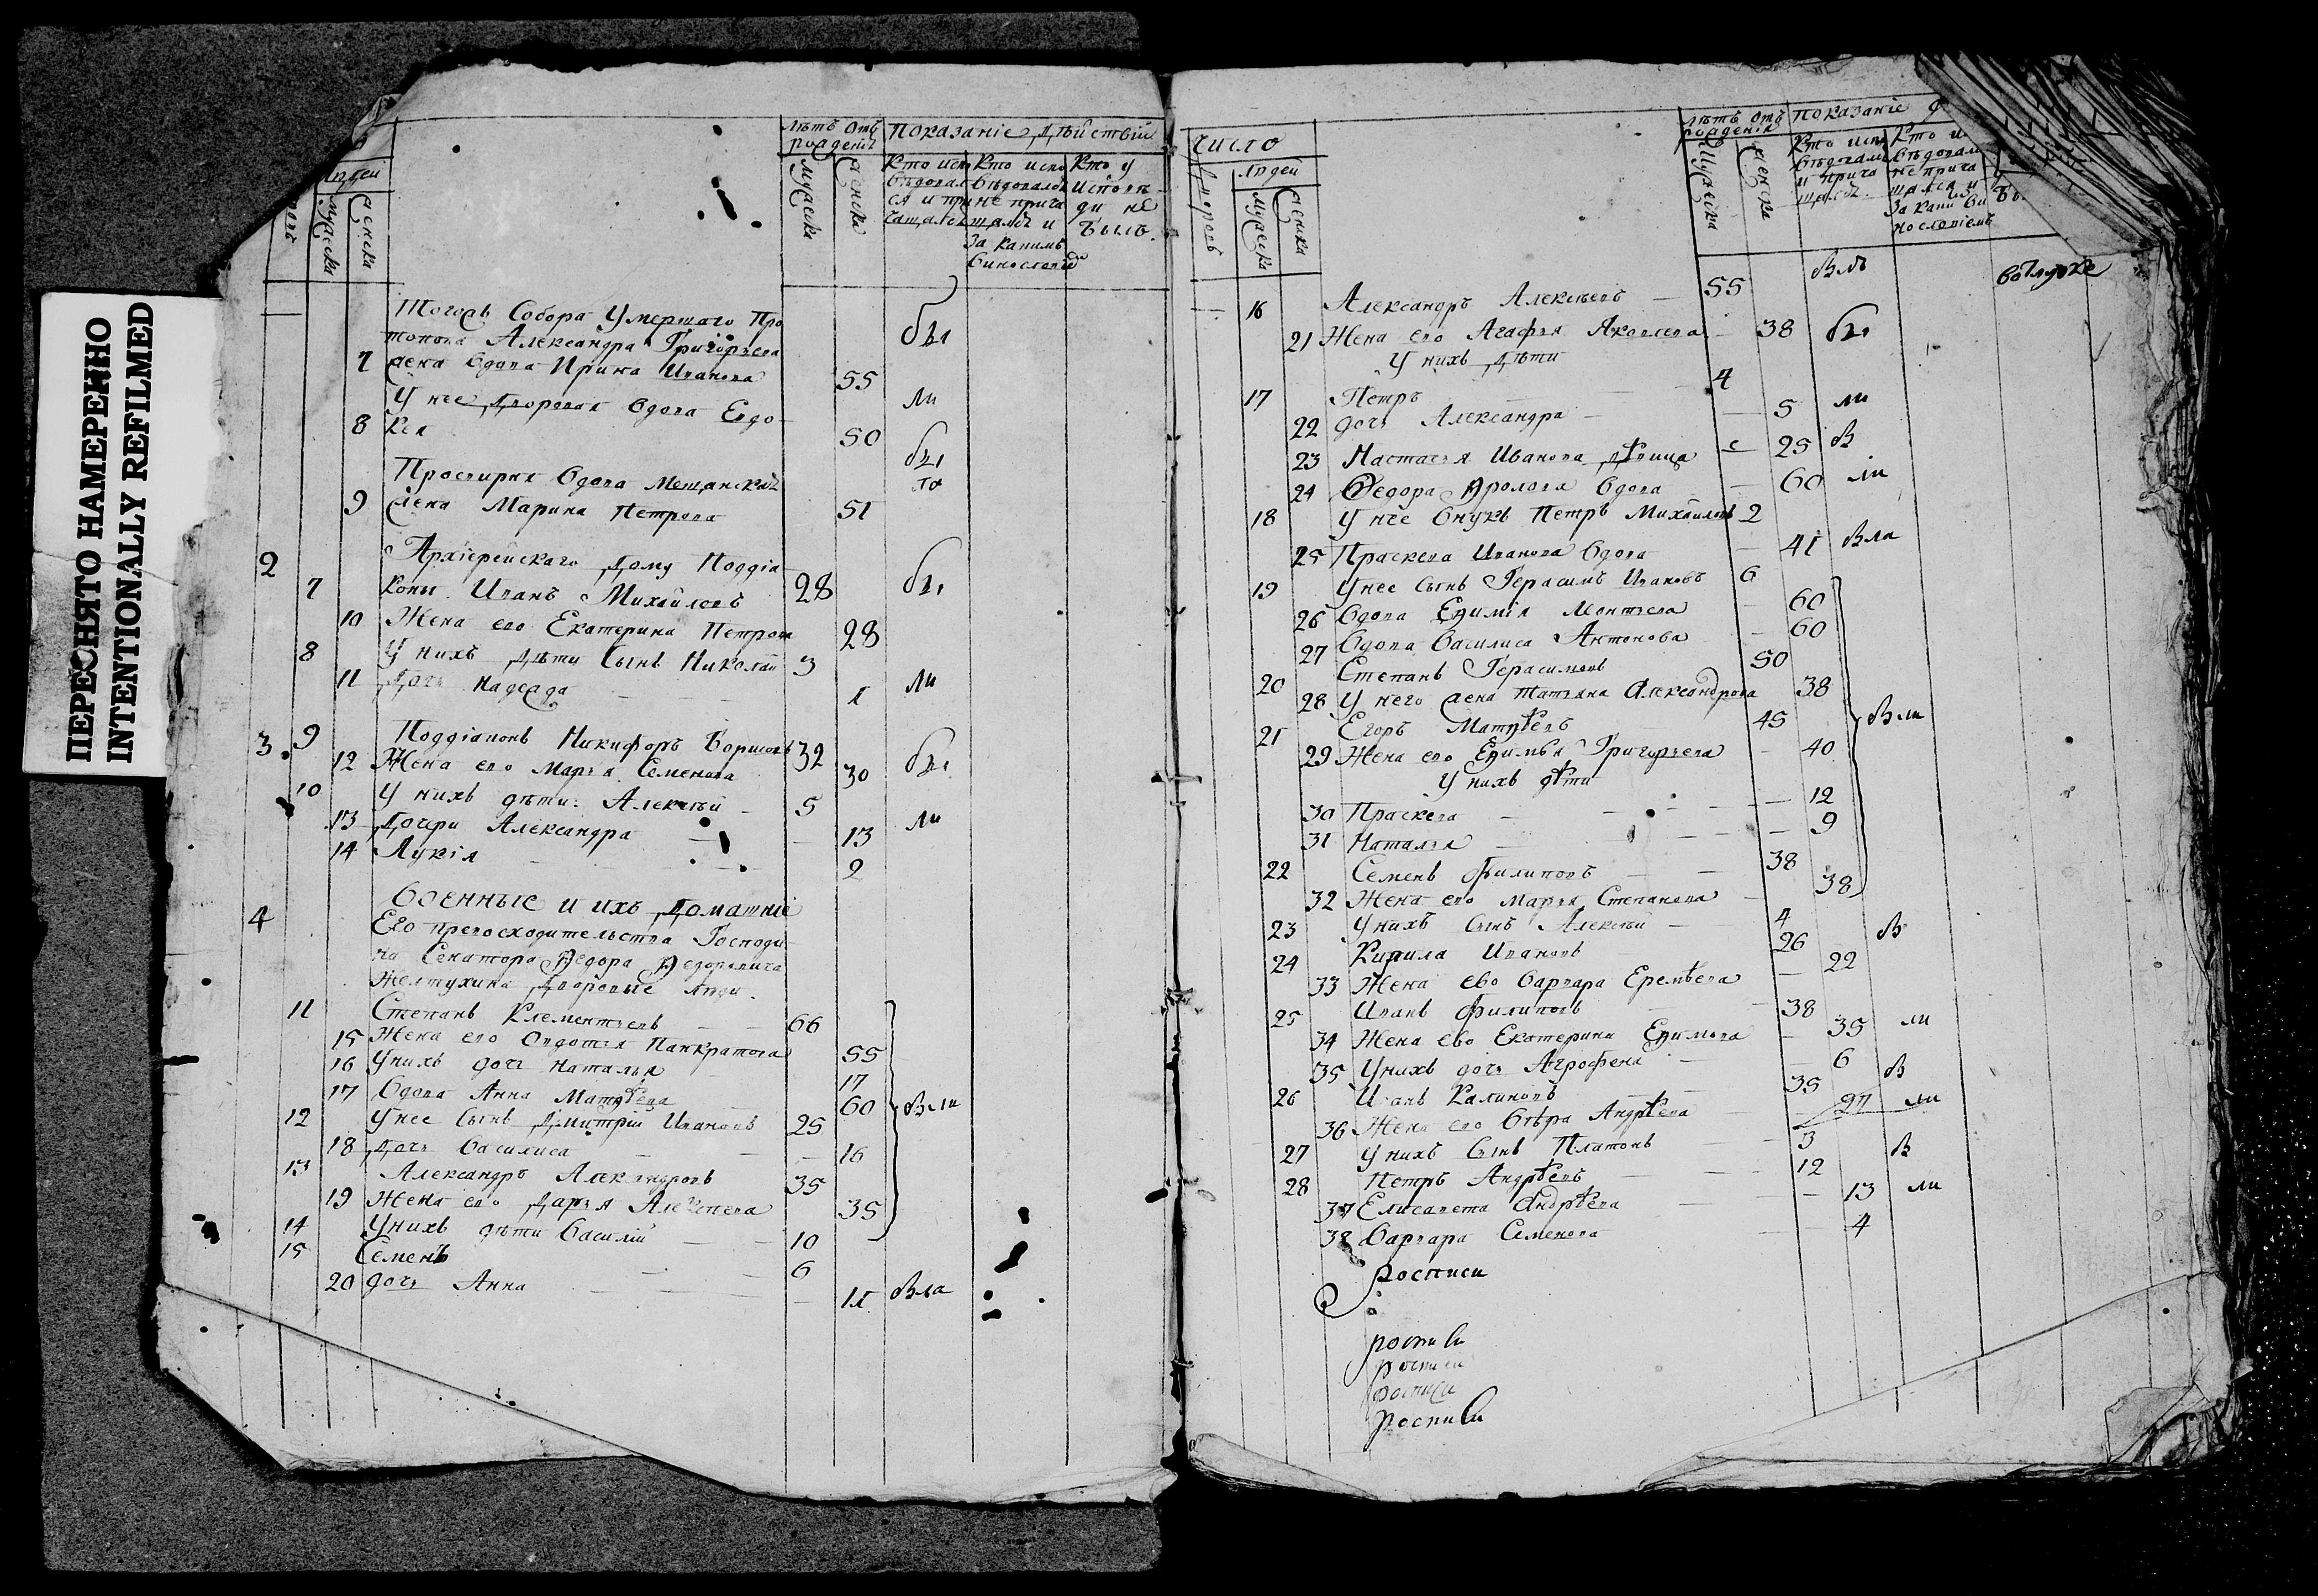 ПЕРЕСНЯТО НАМЕРЕННО
INTENTIONALLY REFILMED
людей
мужеска
женска
лѣтъ отъ рожденія
мужеска
женска
Показаніе дѣйствій
Кто исповѣдовался и причащался
Кто исповѣдовался не причащался и за какимъ винословіем
Кто у исповѣди не былъ.
Тогожъ Собора Умершаго Про
топопа Александра Григорьева
7 жена вдова Ирина Иванова 55 бы
У нее дворовая вдова Евдо
8 кея 50 ли
Просвирня вдова мещанская
9 жена Марина Петрова 51 бы
2 Архіерейскаго дому Поддіа
7 конъ Иванъ Михайловъ 28 бы
10 Жена его Екатерина Петрова 28
8 У нихъ дѣти сынъ Николай 3
11 Дочь Надежда 1 ли
3. 9 Поддіаконъ Никифоръ Борисовъ 32
12 Жена его Марья Семенова 30 бы
10 У нихъ дѣти: Алексѣй 5
13 Дочери Александра 13 ли
14 Лукія 2
Военные и ихъ домашніе
4 Его превосходительства Господи
на Сенатора Федора Федоровича
Желтухина дворовые люди.
11 Степанъ Клементьевъ 66
15 Жена его Авдотья Панкратова 55
16 У нихъ дочь Наталья 17
17 Вдова Анна Матвѣева 60 были
12 У нее сынъ Дмитрій Ивановъ 25
18 Дочь Василиса 16
13 Александръ Александровъ 35
19 Жена его Дарья Алексѣева 35
14 У нихъ дѣти Василій 10
15 Семенъ 6
20 дочь Анна 11 была
число
дворовъ
людей
мужеска
женска
лѣтъ отъ рожденія
мужеска
женска
Показаніе
16 Александръ Алексѣевъ 55 былъ
21 Жена его Агафья Яковлева 38 бы
У нихъ дѣти
17 Петръ 4
22 дочь Александра 5 ли
23 Настасья Иванова дѣвица 25 б
24 Федора Фролова вдова 60 ли
18 У нее внукъ Петръ Михайловъ 2
25 Праскева Иванова вдова 41 была
19 У нее сынъ Герасимъ Ивановъ 6
26 Вдова Ефимія Монтьева 60
27 Вдова Василиса Антонова 60
20 Степанъ Герасимовъ 50
28 У него жена Татьяна Александрова 38
21 Егоръ Матвѣевъ 45 были
29 Жена его Ефимья Григорьева 40
У нихъ дѣти
30 Праскева 12
31 Наталья 9
22 Семенъ Филиповъ 38
32 Жена его Марья Степанова 38
23 У нихъ сынъ Алексѣй 4
24 Кирила Ивановъ 26 б
33 Жена ево Варвара Еремѣева 22
25 Иванъ Филиповъ 38
34 Жена ево Екатерина Ефимова 35 ли
35 У нихъ дочь Агрофена 6
26 Иванъ Калиновъ 35 б
36 Жена его Вѣра Андрѣева 27 ли
27 У нихъ сынъ Платонъ 3
28 Петръ Андрѣевъ 12 б
37 Елисавета Андрѣева 13 ли
38 Варвара Семенова 4
росписи
росписи
росписи
росписи
росписи